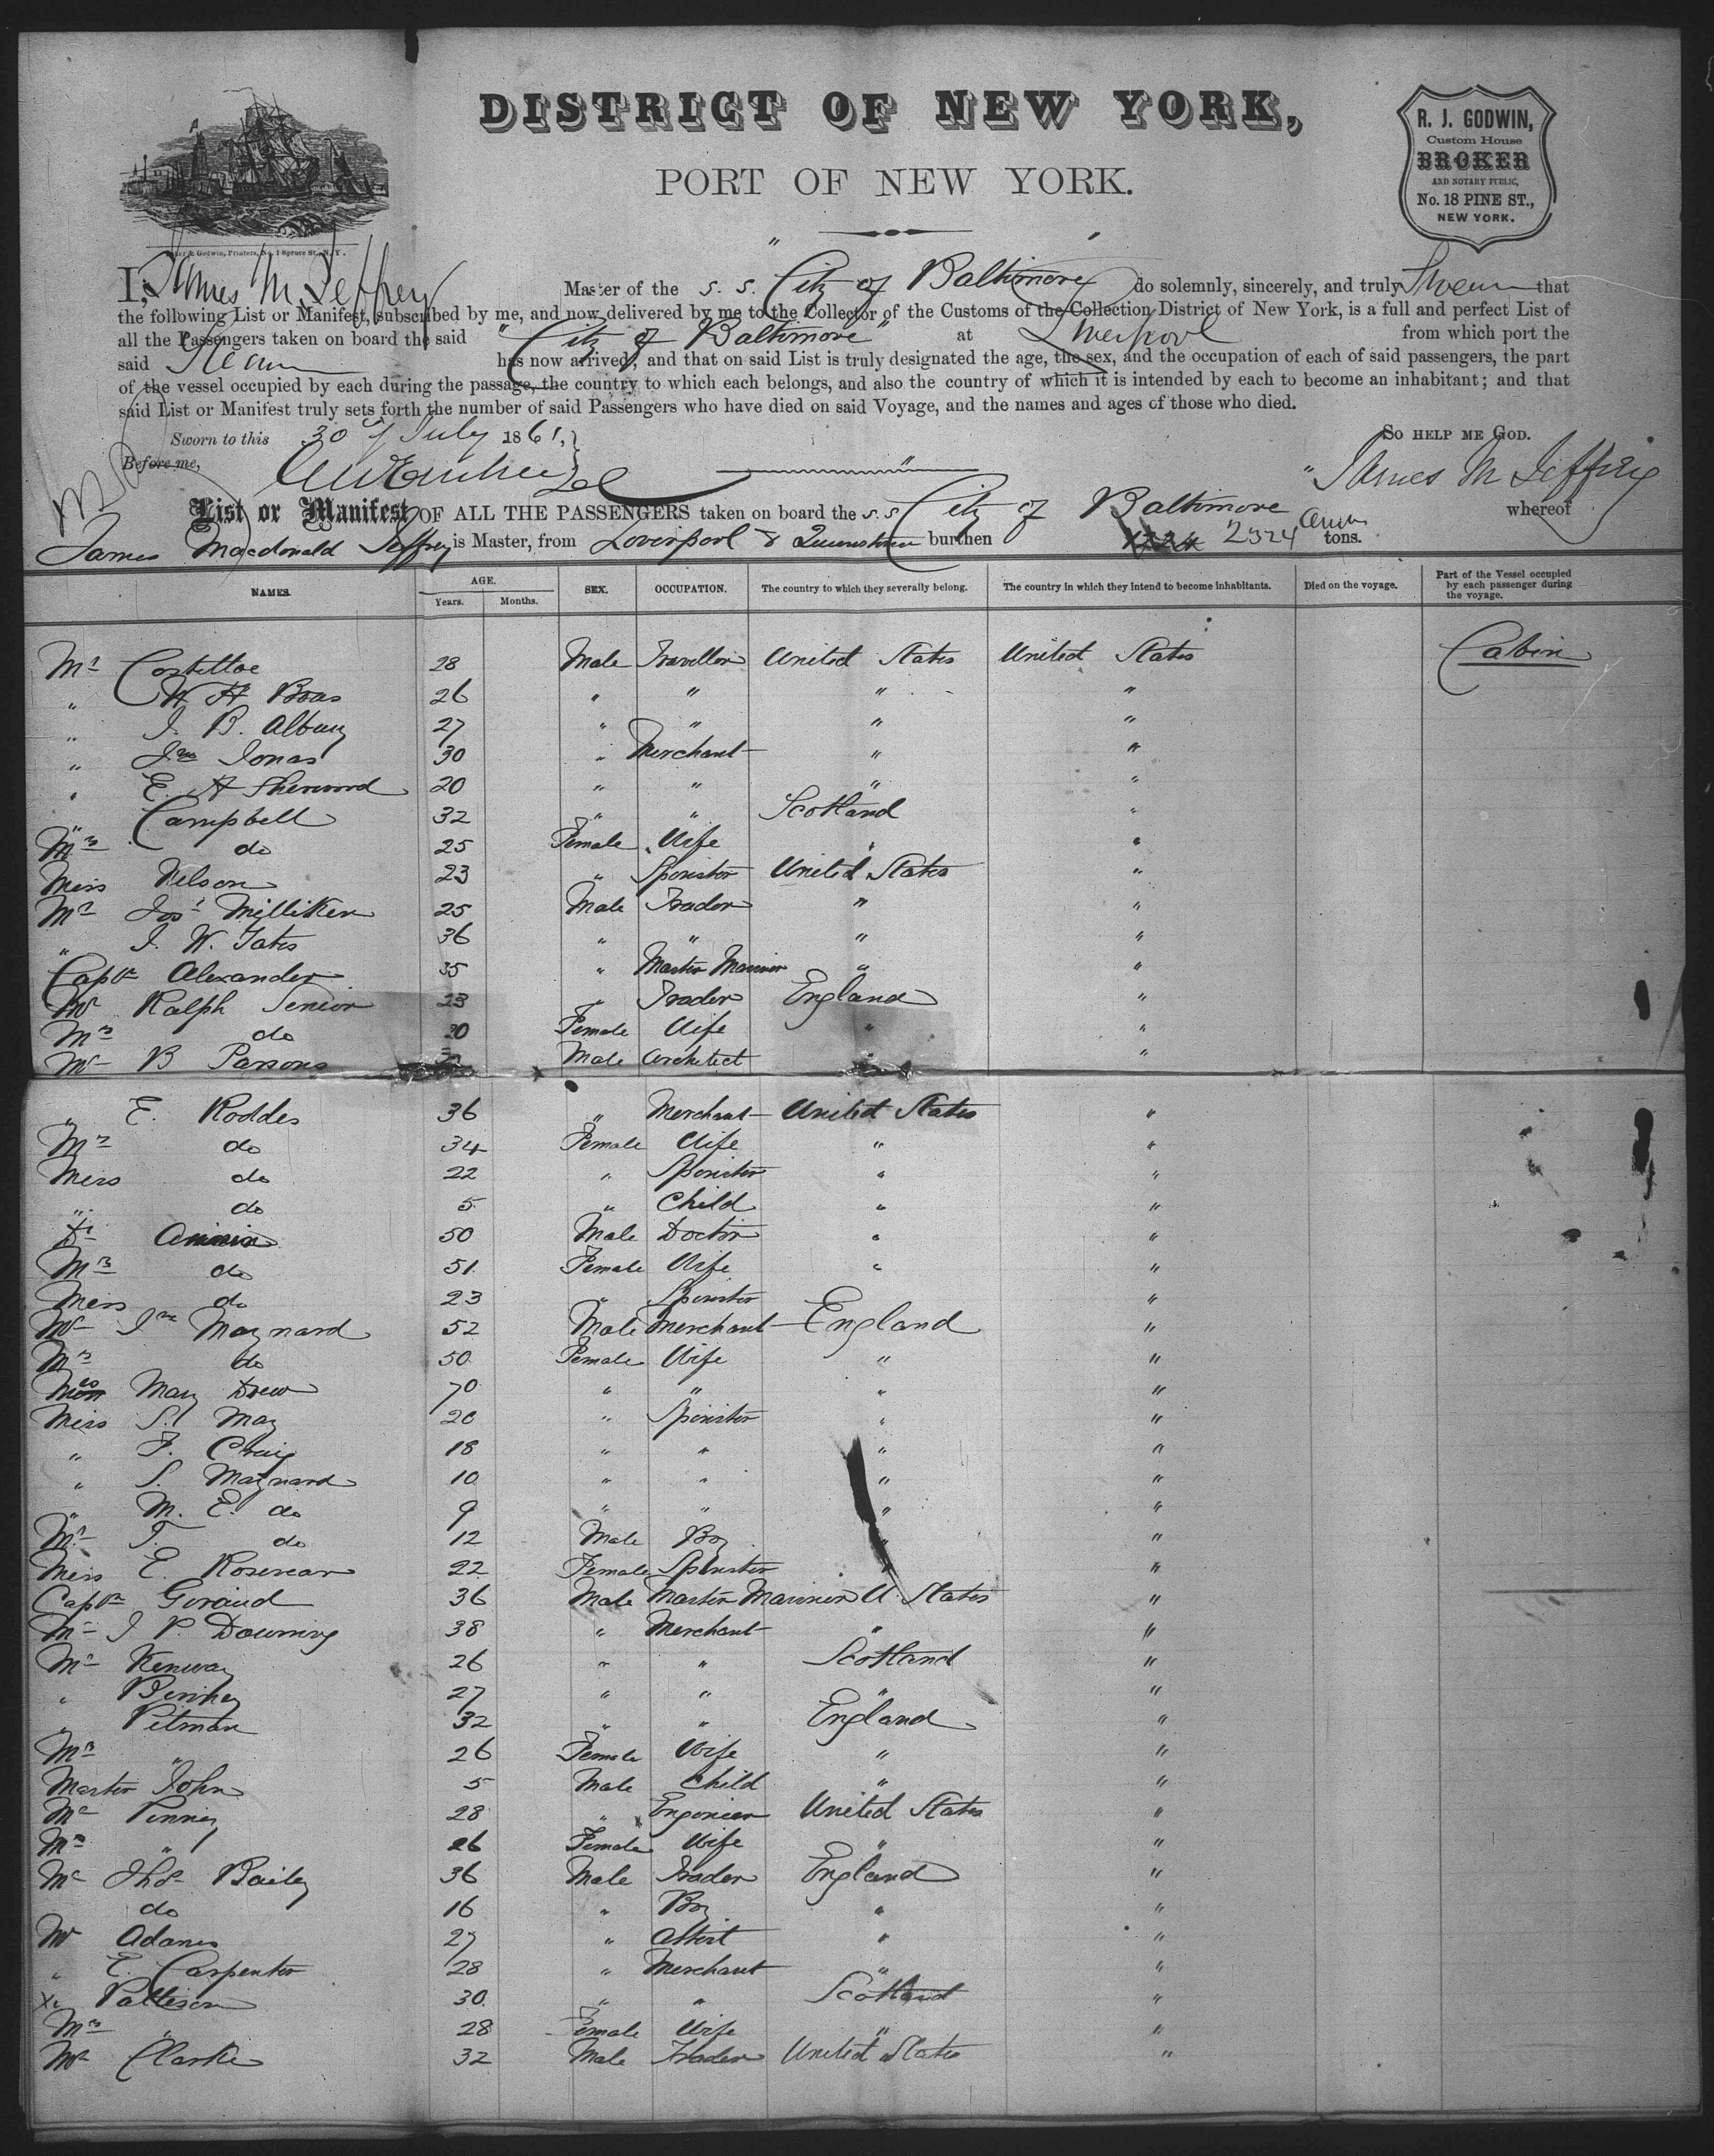 DISTRICT OF NEW YORK,
PORT OF NEW YORK.
R. J. GODWIN,
Custom House
BROKER
AND NOTARY PUBLIC,
No. 18 PINE ST.,
NEW YORK.
Godwin, Printers, No. 1 Spruce St., N.Y.
I, James M. Jeffrey Master of the s. s. "City of Baltimore" do solemnly, sincerely, and truly Swear that
the following List or Manifest, subscribed by me, and now delivered by me to the Collector of the Customs of the Collection District of New York, is a full and perfect List of
all the Passengers taken on board the said "City of Baltimore" at Liverpool from which port the
said Steamer has now arrived, and that on said List is truly designated the age, the sex, and the occupation of each of said passengers, the part
of the vessel occupied by each during the passage, the country to which each belongs, and also the country of which it is intended by each to become an inhabitant; and that
said List or Manifest truly sets forth the number of said Passengers who have died on said Voyage, and the names and ages of those who died.
Sworn to this 30 of July 1861, SO HELP ME GOD.
Before me, James M Jeffrey
List or Manifest OF ALL THE PASSENGERS taken on board the s. s City of Baltimore whereof
James Macdonald Jeffrey is Master, from Loverpool & Queenstown burthen 2324 tons.
NAMES. AGE. SEX. OCCUPATION. The country to which they severally belong. The country in which they intend to become inhabitants. Died on the voyage. Part of the Vessel occupied by each passenger during the voyage.
Years. Months.
Mr Costelloe 28 Male Traveller United States United States Cabin
" W H Boas 26 " " " "
" J. B. Albury 27 " " " "
" Jno Jonas 30 " Merchant " "
" E. A Sherwood 20 " " " "
" Campbell 32 " " Scotland "
Mrs do 25 Female Wife " "
Miss Nelson 23 " Spinster United States "
Mr Jos Milliken 25 Male Trader " "
" J. W. Yates 36 " " " "
Captn Alexander 35 " Master Mariner " "
Mr Ralph Senior 23 " Trader England "
Mrs do 30 Female Wife " "
Mr B Parsons Male Architect " "
" E. Roddes 36 " Merchant United States "
Mrs do 34 Female Wife " "
Miss do 22 " Spinster " "
" do 5 " Child " "
Dr 50 Male Doctor " "
Mrs do 51 Female Wife " "
Miss do 23 " Spinster " "
Mr Jno Maynard 52 Male Merchant England "
Mrs do 50 Female Wife " "
Mrs Mary Drew 70 " " " "
Miss S. May 20 " Spinster " "
" F. Craig 18 " " " "
" S. Maynard 10 " " " "
" M. E. do 9 " " " "
Mr T. do 12 Male Boy " "
Miss E. Rosevear 22 Female Spinster " "
Captn Giraud 36 Male Master Mariner U. States "
Mr J P. Downing 38 " Merchant " "
Mr Kenway 26 " " Scotland "
" Binney 27 " " " "
" Pitman 32 " " England "
Mrs " 26 Female Wife " "
Master John 5 Male Child " "
Mr Pinney 28 " Engonier United States "
Mrs " 26 Female Wife " "
Mr Thos Bailey 36 Male Trader England "
do 16 " Boy " "
Mr Adams 27 " Attist " "
" E. Carpenter 28 " Merchant " "
Pattison 30 " " Scotland "
Mrs " 28 Female Wife " "
Mr Clarke 32 Male Trader United States "